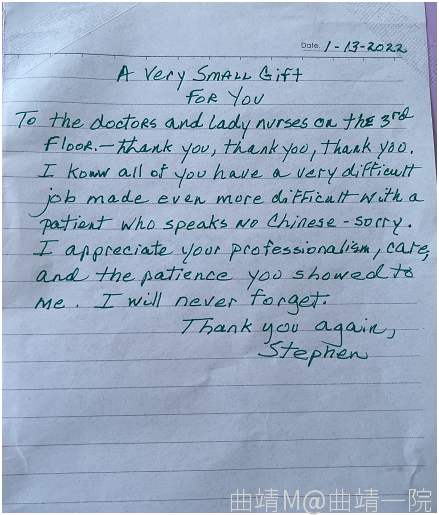 Date. 1-13-2022
A Very SMALL Gift
FOR YOU
To the doctors and lady nurses on the 3rd
Floor.—thank you, thank you, thank you.
I konw all of you have a very difficult
job made even more difficult with a
patient who speaks no Chinese - sorry.
I appreciate your professionalism, care,
and the patience you showed to
me. I will never forget.
Thank you again,
Stephen
曲靖M@曲靖一院